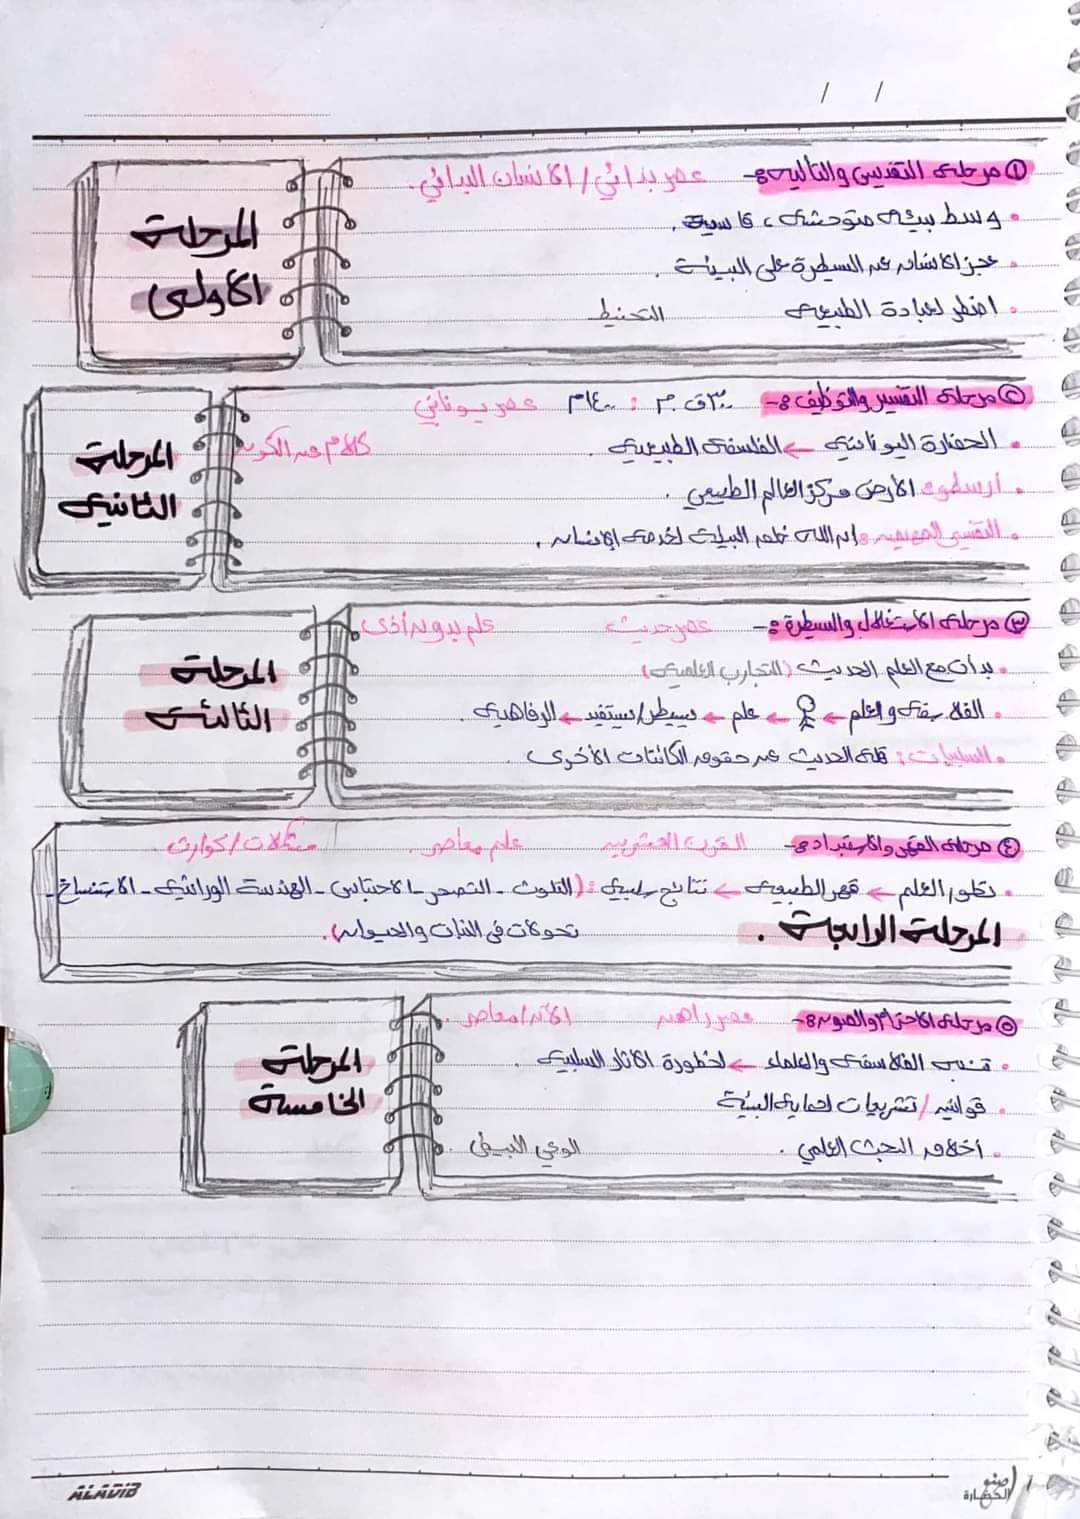 / /
① مرحلة التقديس والتأليه :- عصر بدائي / الانسان البدائي .
• وسط بيئة متوحشة ، قاسية .
• عجز الانسان عن السيطرة على البيئة .
• اضطر لعبادة الطبيعة التحنيط
المرحلة
الأولى
② مرحلة التفسير والتوظيف :- ٣٠٠ ق.م : ١٤٠٠م عصر يوناني
• الحضارة اليونانية ← الفلسفة الطبيعية . كلام عن الكون
• أرسطو: الأرض مركز العالم الطبيعي .
• التفسير: إن الله خلق البيئة لخدمة الإنسان .
المرحلة
الثانية
③ مرحلة الاستغلال والسيطرة :- عصر حديث علم بدون أذى
• بدأت مع العلم الحديث (التجارب العلمية)
• الفلاسفة والعلم ← ← علم ← يسيطر/يستفيد ← الرفاهية .
• السلبيات : قلة الحديث عن حقوق الكائنات الأخرى .
المرحلة
الثالثة
④ مرحلة القهر والاستبداد :- القرن العشرين علم معاصر . مشكلات / كوارث
• تطور العلم ← قهر الطبيعة ← نتائج سلبية : (التلوث - التصحر - الاحتباس - الهندسة الوراثية - الاستنساخ -
تحولات في النبات والحيوان) .
المرحلة الرابعة .
⑤ مرحلة الاحترام والصون :- عصر راهن الآن / معاصر .
• تنبه الفلاسفة والعلماء ← لخطورة الآثار السلبية .
• قوانين / تشريعات لحماية البيئة
• أخلاق البحث العلمي . الوعي البيئي .
المرحلة
الخامسة
ALADIB
صنو
الحضارة